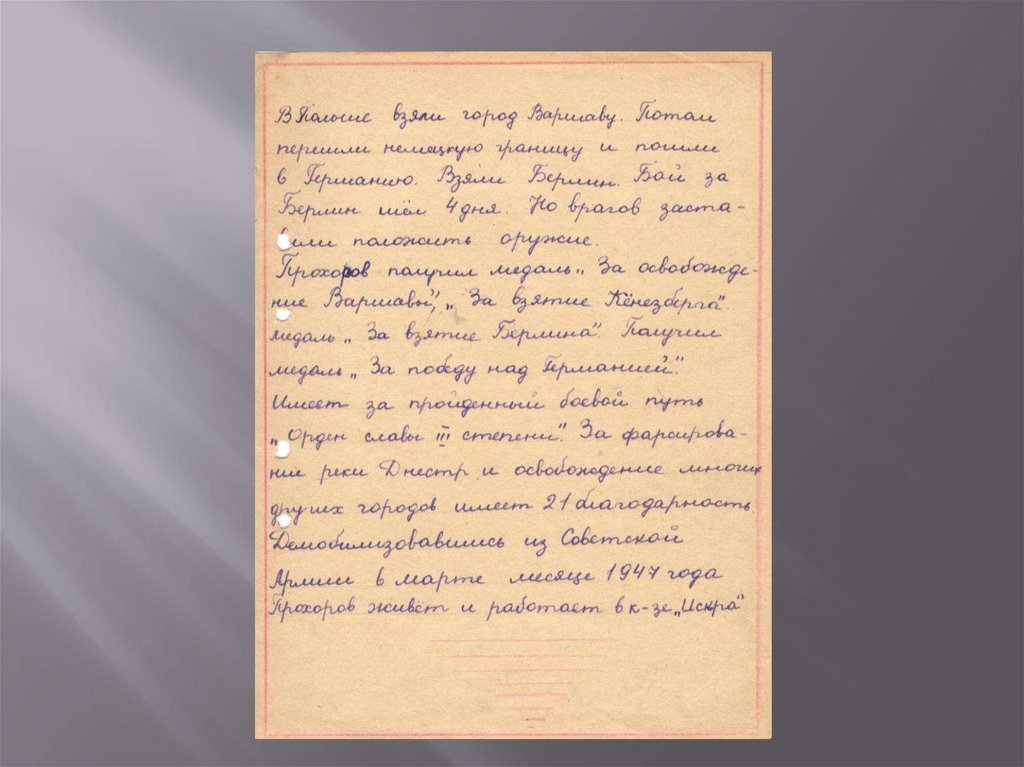 В Польше взяли город Варшаву. Потом
перешли немецкую границу и пошли
в Германию. Взяли Берлин. Бой за
Берлин шёл 4 дня. Но врагов заста-
вили положить оружие.
Прохоров получил медаль „За освобожде-
ние Варшавы", „За взятие Кёнезберга".
медаль „За взятие Берлина". Получил
медаль „За победу над Германией".
Имеет за пройденный боевой путь
„Орден славы III степени". За фарсирова-
ние реки Днестр и освобождение многих
других городов имеет 21 благодарность.
Демобилизовавшись из Советской
Армии в марте месяце 1947 года
Прохоров живёт и работает в к-зе „Искра"